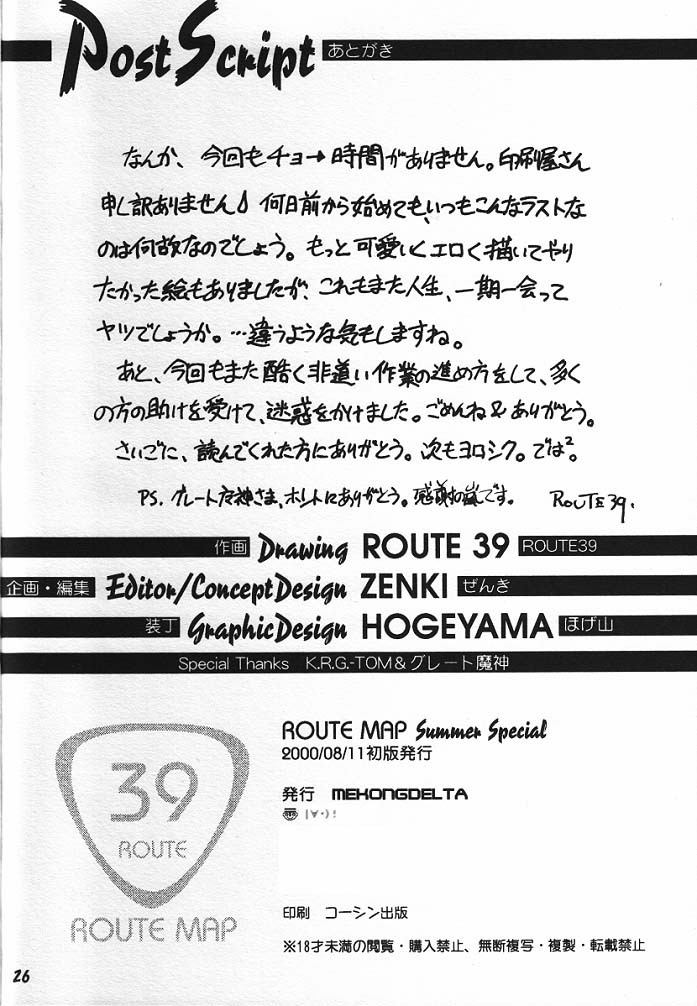 Post Script あとがき
なんか、今回もチョー時間がありません。印刷屋さん
申し訳ありません 何日前から始めても、いつもこんなラストな
のは何故なのでしょう。もっと可愛いくエロく描いてやり
たかった絵もありましたが、これもまた人生、一期一会って
ヤツでしょうか。…違うような気もしますね。
あと、今回もまた酷く非道い作業の進め方をして、多く
の方の助けを受けて、迷惑をかけました。ごめんね&ありがとう。
さいごに、読んでくれた方にありがとう。次もヨロシク。では²。
PS. グレート魔神さま、ホントにありがとう。感謝の嵐です。 ROUTE39.
作画 Drawing ROUTE 39 ROUTE39
企画・編集 Editor/Concept Design ZENKI ぜんき
装丁 Graphic Design HOGEYAMA ほげ山
Special Thanks K.R.G.-TOM&グレート魔神
39
ROUTE
ROUTE MAP
ROUTE MAP Summer Special
2000/08/11初版発行
発行 MEKONGDELTA
|∀・)!
印刷 コーシン出版
※18才未満の閲覧・購入禁止、無断複写・複製・転載禁止
26